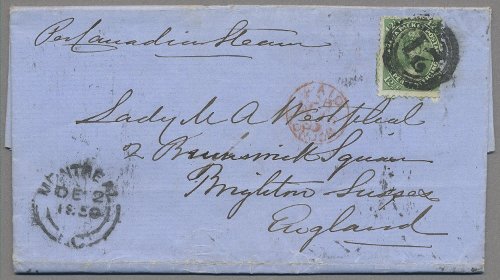 Per Canadian Steam
PAID
Lady M A Westphal
2 Brunswick Square
Brighton Sussex
England
MONTREAL
DE 2
1859
C
21